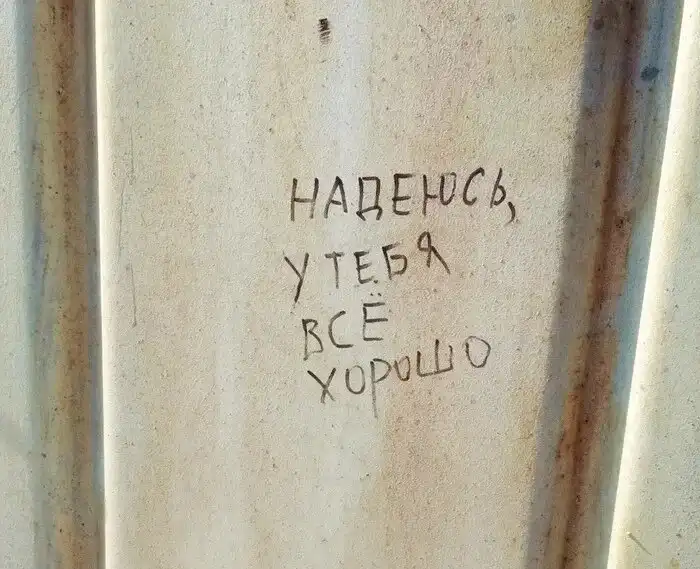 НАДЕЮСЬ,
У ТЕБЯ
ВСЁ
ХОРОШО